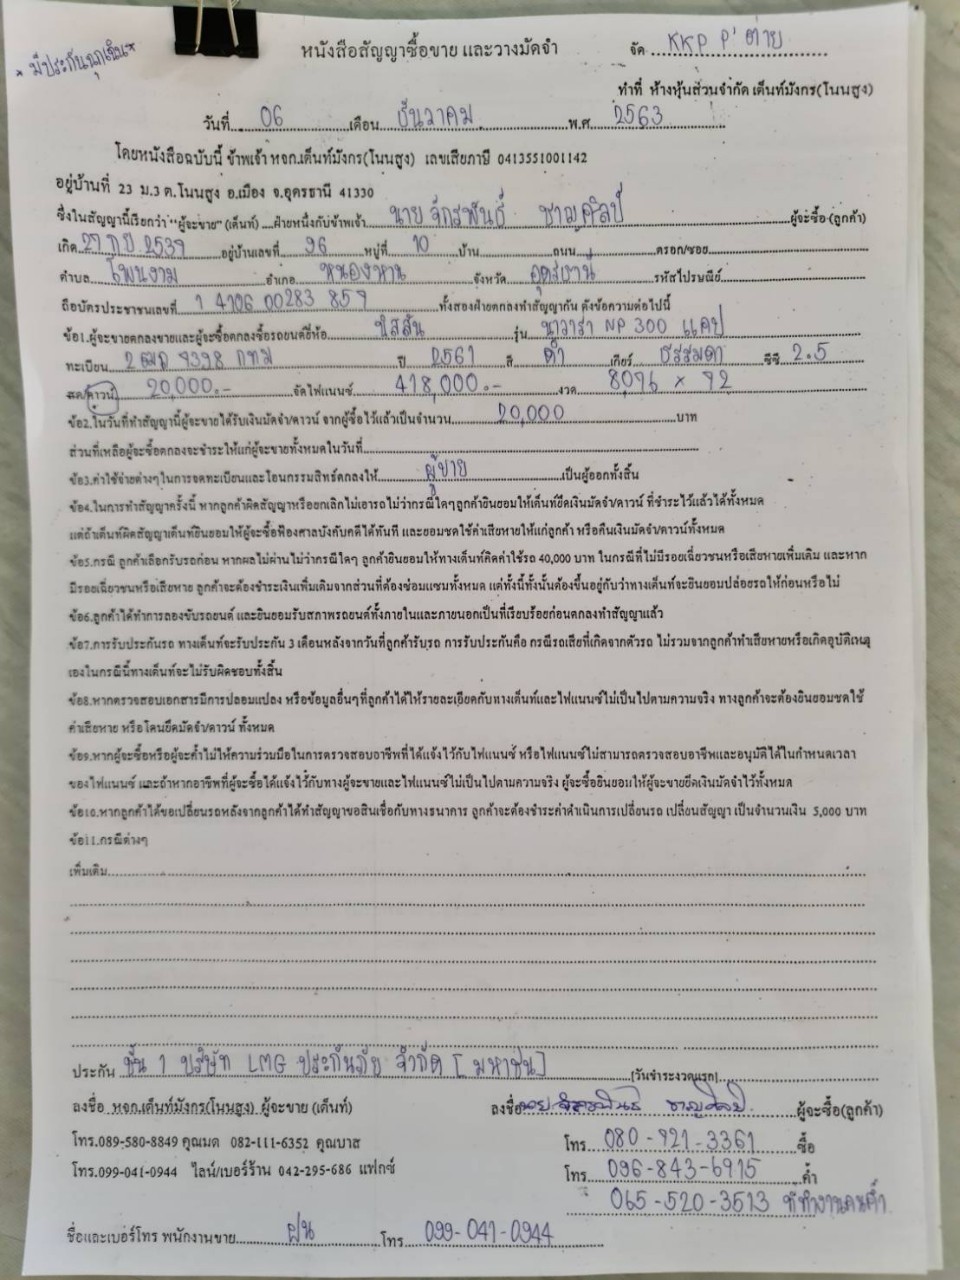 * มีประกันฉุกเฉิน*
หนังสือสัญญาซื้อขาย และวางมัดจำ
จัด KKP P'ต่าย
ทำที่ ห้างหุ้นส่วนจำกัด เต็นท์มังกร(โนนสูง)
วันที่ 06 เดือน ธันวาคม พ.ศ 2563
โดยหนังสือฉบับนี้ ข้าพเจ้า หจก.เต็นท์มังกร(โนนสูง) เลขเสียภาษี 0413551001142
อยู่บ้านที่ 23 ม.3 ต.โนนสูง อ.เมือง จ.อุดรธานี 41330
ซึ่งในสัญญานี้เรียกว่า "ผู้จะขาย" (เต็นท์) ....ฝ่ายหนึ่งกับข้าพเจ้า นาย จักรพันธ์ ชาญศิลป์ ผู้จะซื้อ (ลูกค้า)
เกิด 27 กย 2539 อยู่บ้านเลขที่ 96 หมู่ที่ 10 บ้าน ถนน ตรอก/ซอย
ตำบล โพนงาม อำเภอ หนองหาน จังหวัด อุดรธานี รหัสไปรษณีย์
ถือบัตรประชาชนเลขที่ 1 4106 00283 859 ทั้งสองฝ่ายตกลงทำสัญญากัน ดังข้อความต่อไปนี้
ข้อ1.ผู้จะขายตกลงขายและผู้จะซื้อตกลงซื้อรถยนต์ยี่ห้อ นิสสัน รุ่น นาวาร่า NP 300 แคป
ทะเบียน 9398 กทม ปี 2561 สี ดำ เกียร์ ธรรมดา ซีซี 2.5
สด/ดาวน์ 20,000.- จัดไฟแนนซ์ 418,000.- งวด 8096 x 92
ข้อ2.ในวันที่ทำสัญญานี้ผู้จะขายได้รับเงินมัดจำ/ดาวน์ จากผู้ซื้อไว้แล้วเป็นจำนวน 20,000 บาท
ส่วนที่เหลือผู้จะซื้อตกลงจะชำระให้แก่ผู้จะขายทั้งหมดในวันที่
ข้อ3.ค่าใช้จ่ายต่างๆในการจดทะเบียนและโอนกรรมสิทธ์ตกลงให้ ผู้ขาย เป็นผู้ออกทั้งสิ้น
ข้อ4.ในการทำสัญญาครั้งนี้ หากลูกค้าผิดสัญญาหรือยกเลิกไม่เอารถ ไม่ว่ากรณีใดๆลูกค้ายินยอมให้เต็นท์ยึดเงินมัดจำ/ดาวน์ ที่ชำระไว้แล้วได้ทั้งหมด
แต่ถ้าเต็นท์ผิดสัญญาเต็นท์ยินยอมให้ผู้จะซื้อฟ้องศาลบังคับคดีได้ทันที และยอมชดใช้ค่าเสียหายให้แก่ลูกค้า หรือคืนเงินมัดจำ/ดาวน์ทั้งหมด
ข้อ5.กรณี ลูกค้าเลือกรับรถก่อน หากผลไม่ผ่านไม่ว่ากรณีใดๆ ลูกค้ายินยอมให้ทางเต็นท์คิดค่าใช้รถ 40,000 บาท ในกรณีที่ไม่มีรอยเฉี่ยวชนหรือเสียหายเพิ่มเติม และหาก
มีรอยเฉี่ยวชนหรือเสียหาย ลูกค้าจะต้องชำระเงินเพิ่มเติมจากส่วนที่ต้องซ่อมแซมทั้งหมด แต่ทั้งนี้ทั้งนั้นต้องขึ้นอยู่กับว่าทางเต็นท์จะยินยอมปล่อยรถให้ก่อนหรือไม่
ข้อ6.ลูกค้าได้ทำการลองขับรถยนต์ และยินยอมรับสภาพรถยนต์ทั้งภายในและภายนอกเป็นที่เรียบร้อยก่อนตกลงทำสัญญาแล้ว
ข้อ7.การรับประกันรถ ทางเต็นท์จะรับประกัน 3 เดือนหลังจากวันที่ลูกค้ารับรถ การรับประกันคือ กรณีรถเสียที่เกิดจากตัวรถ ไม่รวมจากลูกค้าทำเสียหายหรือเกิดอุบัติเหตุ
เองในกรณีนี้ทางเต็นท์จะไม่รับผิดชอบทั้งสิ้น
ข้อ8.หากตรวจสอบเอกสารมีการปลอมแปลง หรือข้อมูลอื่นๆที่ลูกค้าได้ให้รายละเอียดกับทางเต็นท์และไฟแนนซ์ไม่เป็นไปตามความจริง ทางลูกค้าจะต้องยินยอมชดใช้
ค่าเสียหาย หรือโดนยึดมัดจำ/ดาวน์ ทั้งหมด
ข้อ9.หากผู้จะซื้อหรือผู้จะค้ำไม่ให้ความร่วมมือในการตรวจสอบอาชีพที่ได้แจ้งไว้กับไฟแนนซ์ หรือไฟแนนซ์ไม่สามารถตรวจสอบอาชีพและอนุมัติได้ในกำหนดเวลา
ของไฟแนนซ์ และถ้าหากอาชีพที่ผู้จะซื้อได้แจ้งไว้กับทางผู้จะขายและไฟแนนซ์ไม่เป็นไปตามความจริง ผู้จะซื้อยินยอมให้ผู้จะขายยึดเงินมัดจำไว้ทั้งหมด
ข้อ10.หากลูกค้าได้ขอเปลี่ยนรถหลังจากลูกค้าได้ทำสัญญาขอสินเชื่อกับทางธนาคาร ลูกค้าจะต้องชำระค่าดำเนินการเปลี่ยนรถ เปลี่ยนสัญญา เป็นจำนวนเงิน 5,000 บาท
ข้อ11.กรณีต่างๆ
เพิ่มเติม
ประกัน ชั้น 1 บริษัท LMG ประกันภัย จำกัด [ มหาชน ] [วันชำระงวดแรก]
ลงชื่อ หจก.เต็นท์มังกร(โนนสูง) ผู้จะขาย (เต็นท์)
ลงชื่อ นาย จักรพันธ์ ชาญศิลป์ ผู้จะซื้อ(ลูกค้า)
โทร.089-580-8849 คุณมด 082-111-6352 คุณบาส
โทร 080-921-3361 ซื้อ
โทร.099-041-0944 ไลน์/เบอร์ร้าน 042-295-686 แฟกซ์
โทร 096-843-6915 ค้ำ
065-520-3513 ที่ทำงานคนค้ำ
ชื่อและเบอร์โทร พนักงานขาย ฝน โทร 099-041-0944